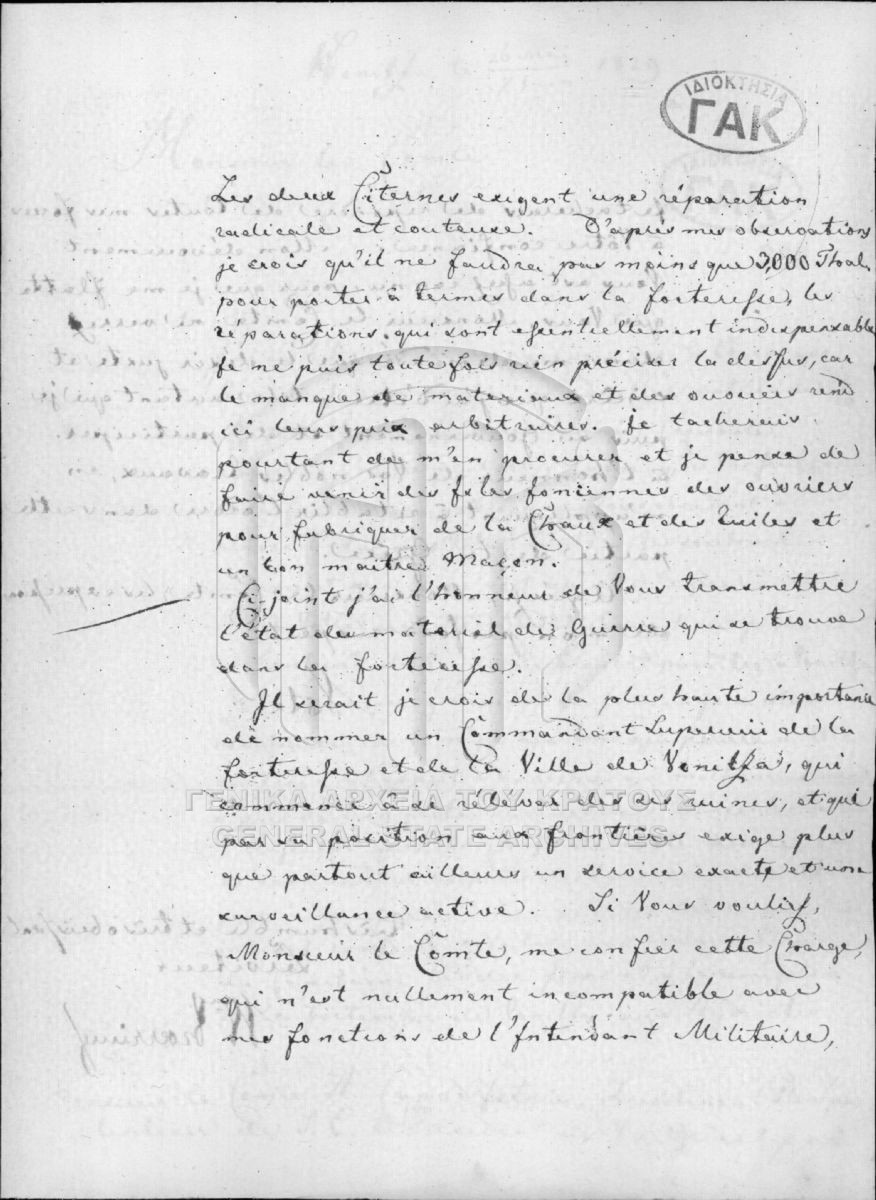 ΙΔΙΟΚΤΗΣΙΑ
ΓΑΚ
Les deux Citernes exigent une réparation
radicale et couteuse. D'après mes observations
je crois qu'il ne faudra pas moins que 3,000 Thal.
pour porter à termes dans la forteresse, les
réparations qui sont essentiellement indispensables
Je ne puis toute fois rien préciser la dessus, car
le manque de materiaux et des ouvriers rend
ici leurs prix arbitraires. je tacherais
pourtant de m'en procurer et je pense de
faire venir des Isles Ioniennes des ouvriers
pour fabriquer de la Chaux et des tuiles et
un bon maitre Maçon.
Ci joint j'ai l'honneur de Vous transmettre
l'état de material de Guerre qui se trouve
dans la forteresse.
Il serait je crois de la plus haute importance
de nommer un Commandant Superieur de la
forteresse et de la Ville de Vonitza, qui
commence à se rélever des ses ruines, et qui
par sa position aux frontières exige plus
que partout ailleurs un service exacte et une
surveillance active. Si Vous vouliez,
Monsieur le Comte, me confier cette Charge,
qui n'est nullement incompatible avec
mes fonctions de l'Intendant Militaire,
ΓΕΝΙΚΑ ΑΡΧΕΙΑ ΤΟΥ ΚΡΑΤΟΥΣ
GENERAL STATE ARCHIVES